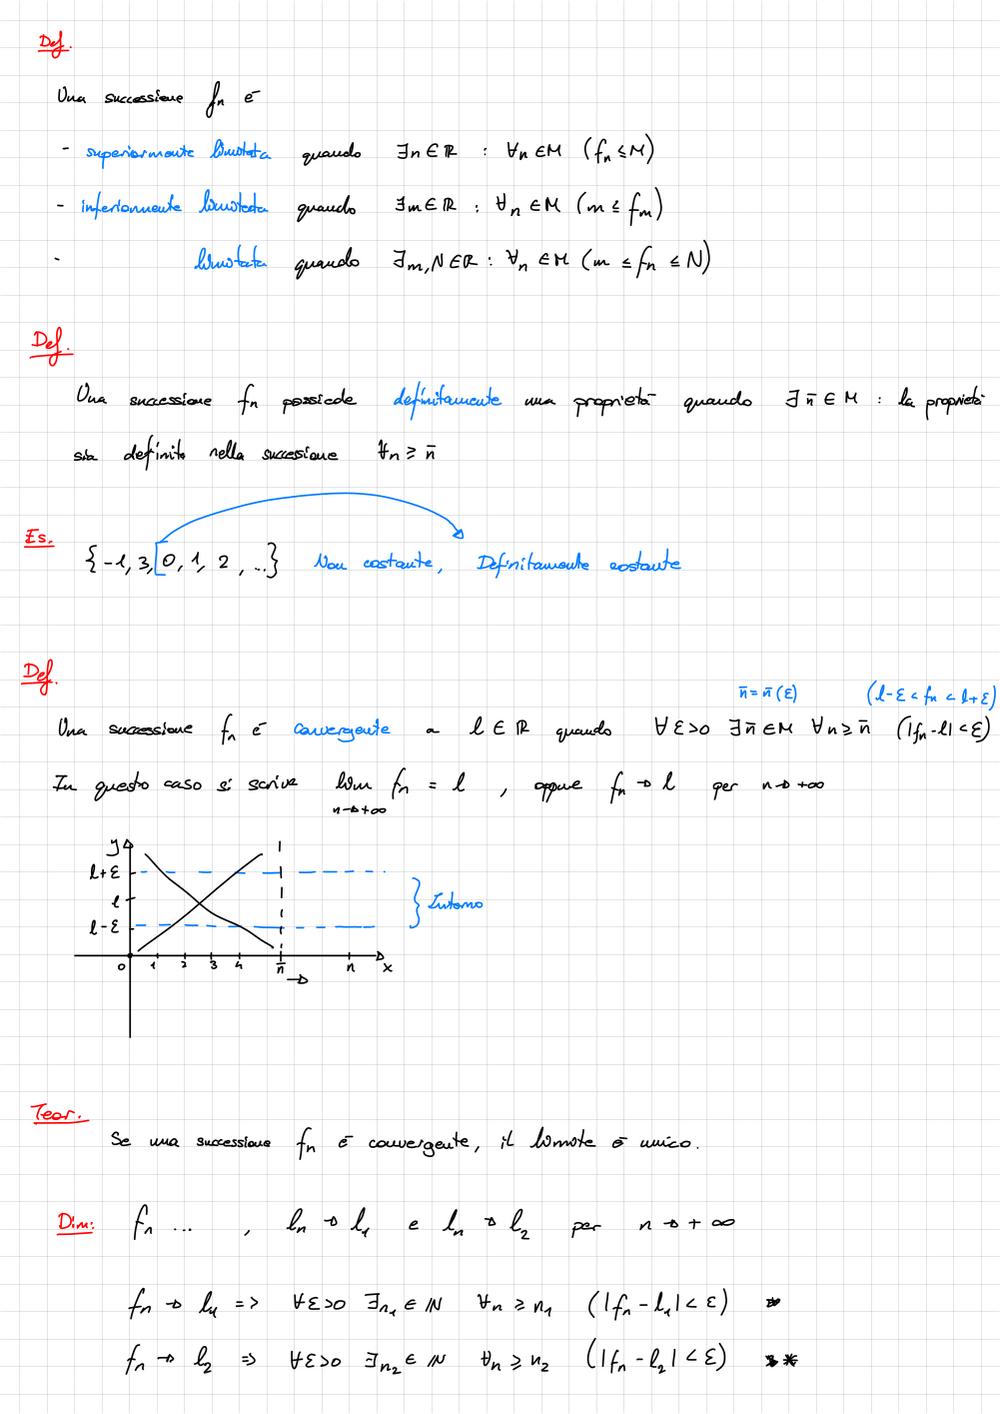 Def.
Una successione fn è
- superiormente limitata quando ∃n∈ℝ : ∀n∈M (fn≤M)
- inferiormente limitata quando ∃m∈ℝ : ∀n∈M (m≤fm)
- limitata quando ∃m,N∈ℝ : ∀n∈M (m≤fn≤N)
Def.
Una successione fn possiede definitamente una proprietà quando ∃n̄∈M : la proprietà
sia definito nella successione ∀n≥n̄
Es.
{-1, 3, [0, 1, 2, ...} Non costante, Definitamente costante
Def.
n̄=n̄(ε) (l-ε<fn<l+ε)
Una successione fn è convergente a l∈ℝ quando ∀ε>0 ∃n̄∈M ∀n≥n̄ (|fn-l|<ε)
In questo caso si scrive lim fn = l , oppure fn→l per n→+∞
n→+∞
y
l+ε
l
l-ε
Intorno
0 1 2 3 4 n̄ n x
→
Teor.
Se una successione fn è convergente, il limite è unico.
Dim: fn ... , ln→l1 e ln→l2 per n→+∞
fn→l1 => ∀ε>0 ∃n1∈ℕ ∀n≥n1 (|fn-l1|<ε) *
fn→l2 => ∀ε>0 ∃n2∈ℕ ∀n≥n2 (|fn-l2|<ε) **